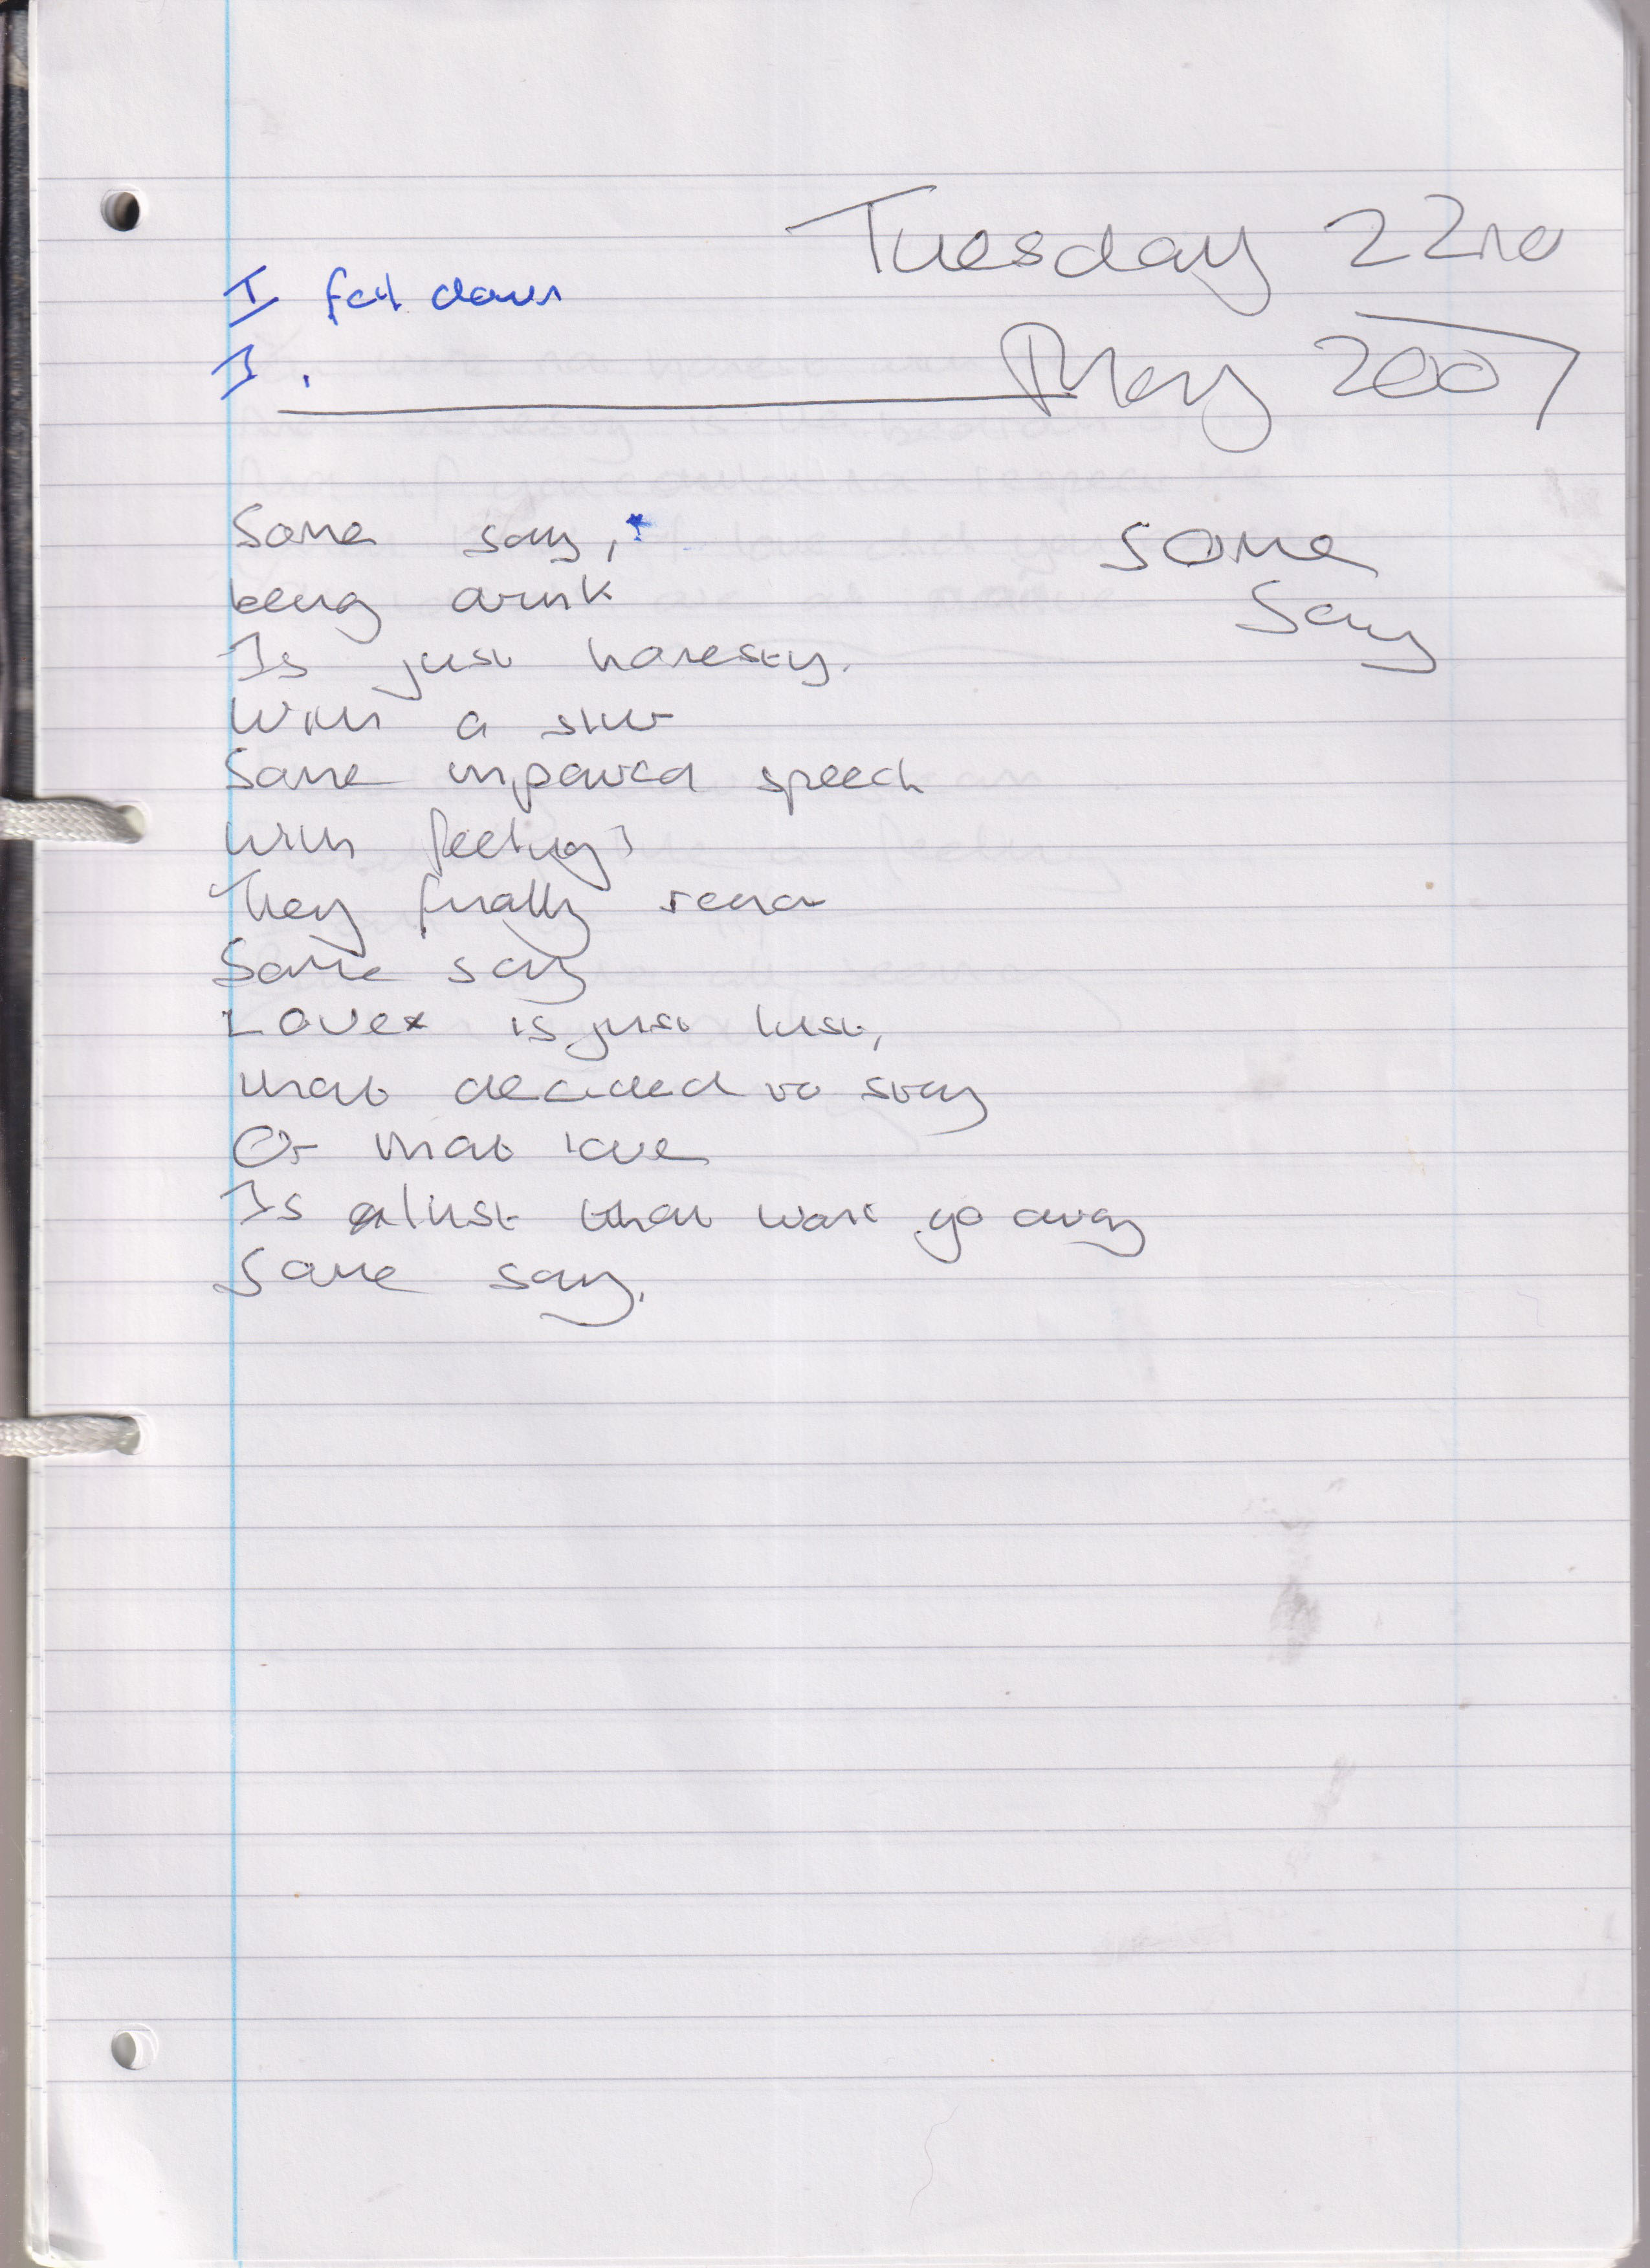 Tuesday 22nd
May 2007
I fell down
I.
Some
Say
Some say,*
being drunk
Is just honesty.
With a slur
Some impaired speech
With feelings
They finally
Some say
Love is just lust,
that decided to stay
Or that love
Is a lust that wont go away
Some say.